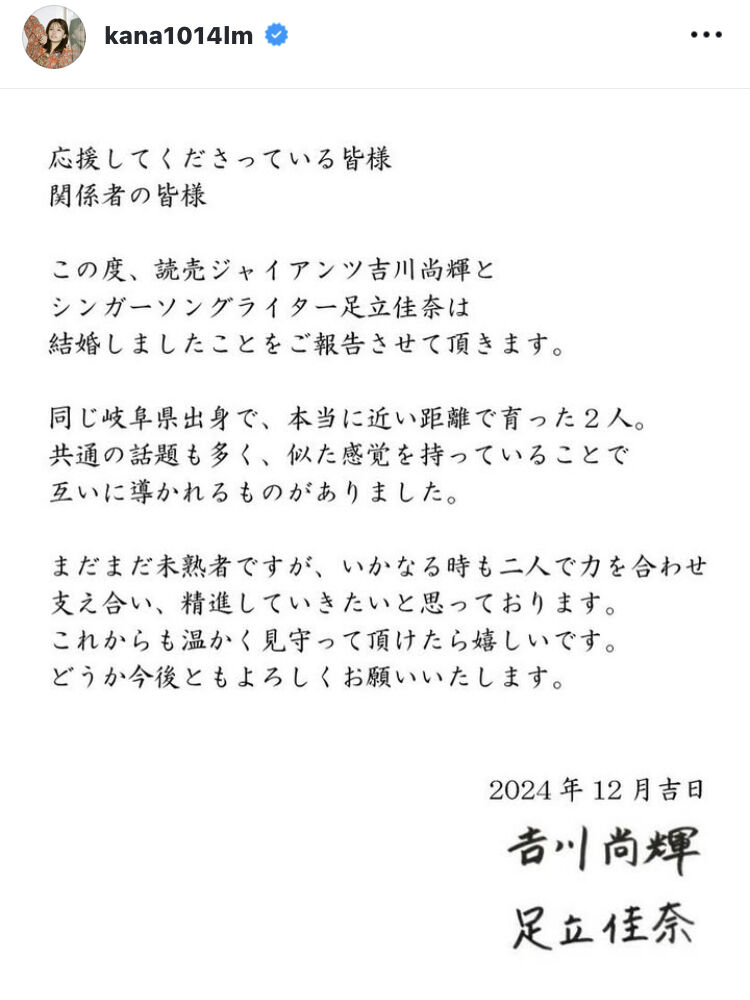 kana1014lm
応援してくださっている皆様
関係者の皆様
この度、読売ジャイアンツ吉川尚輝と
シンガーソングライター足立佳奈は
結婚しましたことをご報告させて頂きます。
同じ岐阜県出身で、本当に近い距離で育った２人。
共通の話題も多く、似た感覚を持っていることで
互いに導かれるものがありました。
まだまだ未熟者ですが、いかなる時も二人で力を合わせ
支え合い、精進していきたいと思っております。
これからも温かく見守って頂けたら嬉しいです。
どうか今後ともよろしくお願いいたします。
2024年12月吉日
𠮷川尚輝
足立佳奈